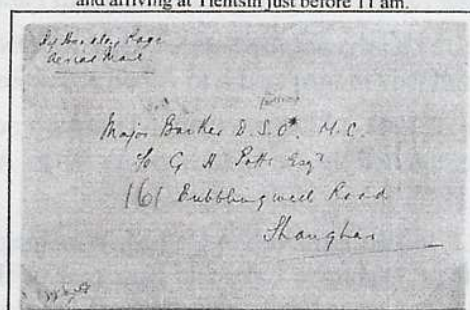 and arriving at Tientsin just before 11 am.
By Handley Page
Aerial Mail
Major Barker D.S.O. M.C.
c/o G H Potts Esqr
161 Bubblingwell Road
Shanghai